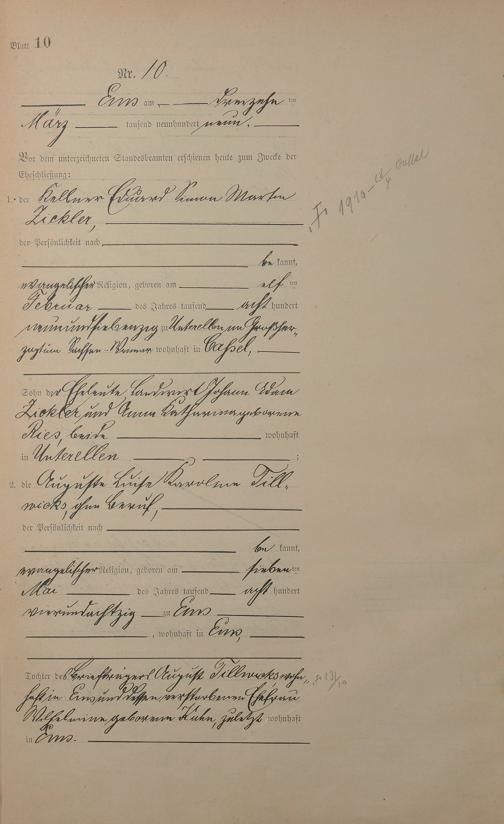 Blatt 10
Nr. 10.
Ems am dreizehn ten
März tausend neunhundert neun.
Vor dem unterzeichneten Standesbeamten erschienen heute zum Zwecke der
Eheschließung:
1. der Kellner Eduard Simon Martin
Zickler,
der Persönlichkeit nach
be kannt,
evangelischer Religion, geboren am elf ten
Februar des Jahres tausend acht hundert
neunundsiebenzig zu Unterellen im Großher-
zogtum Sachsen-Weimar wohnhaft in Cassel,
Sohn der Eheleute Landwirt Johann Adam
Zickler und Anna Katharina geborene
Ries, beide wohnhaft
in Unterellen ;
2. die Auguste Luise Karoline Till-
wicks, ohne Beruf,
der Persönlichkeit nach
be kannt,
evangelischer Religion, geboren am sieben ten
Mai des Jahres tausend acht hundert
vierundachtzig zu Ems
, wohnhaft in Ems,
Tochter des Briefträgers August Tillwicks wohn-
haft in Ems und dessen verstorbenen Ehefrau
Wilhelmine geborene Kuhn, zuletzt wohnhaft
in Ems.
1910 Cassel